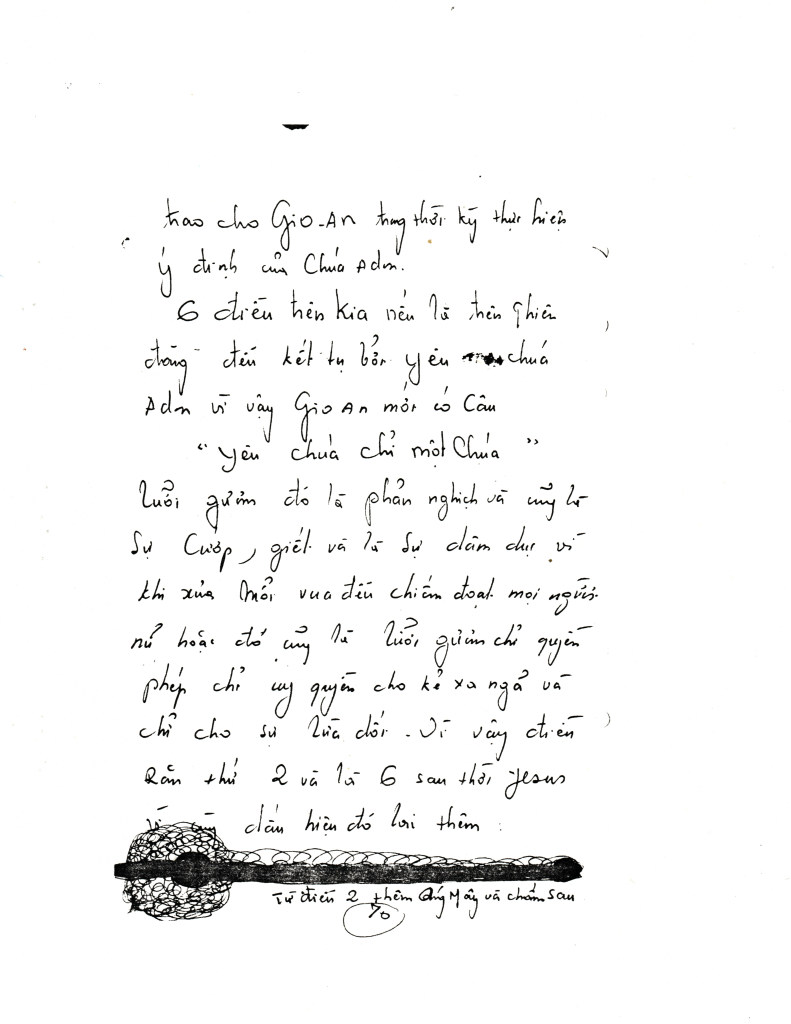 trao cho Gio-An trong thời kỳ thực hiện
ý định của Chúa Adm.
6 điều trên kia nếu là trên Thiên
đàng đều kết tụ bởi yêu chuá
Adm vì vậy Gio An mới có Câu
“ yêu chuá chỉ một Chúa ”
lưỡi gươm đó là phản nghịch và cũng là
Sự Cướp, giết và là sự dâm dục vì
khi xưa mỗi vua đều chiếm đoạt mọi người
nữ hoặc đó cũng là lưỡi gươm chỉ quyền
phép chỉ uy quyền cho kẻ xa ngả và
chỉ cho sự lừa dối. Vì vậy điều
Răn thứ 2 và là 6 sau thời Jesus
vì cũng dấu hiệu đó lại thêm :
Từ điều 2 thêm Mây và chấm sau
70